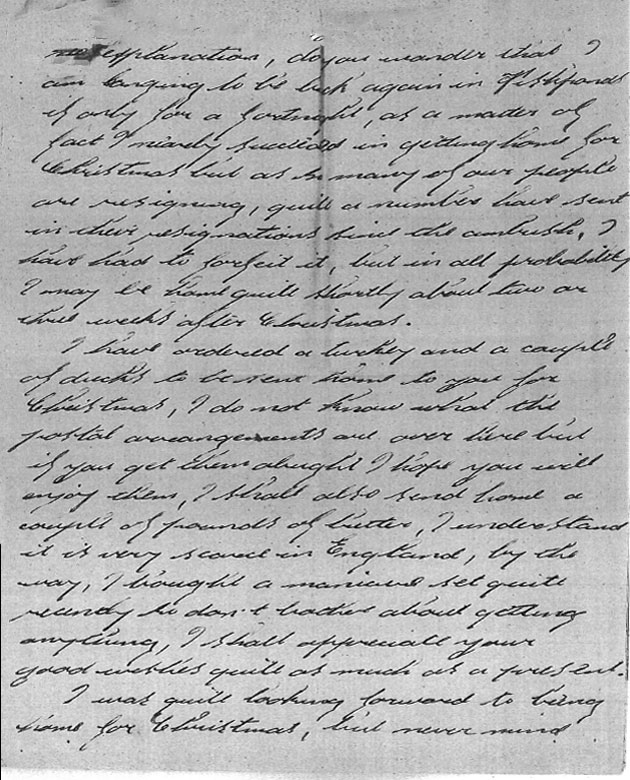 explanation, do you wonder that I
am longing to be back again in Fishponds
if only for a fortnight, as a matter of
fact I nearly succeeded in getting home for
Christmas but as so many of our people
are resigning, quite a number have sent
in their resignations since the ambush, I
have had to forfeit it, but in all probability
I may be home quite shortly about two or
three weeks after Christmas.
I have ordered a turkey and a couple
of ducks to be sent home to you for
Christmas, I do not know what the
postal arrangements are over here but
if you get them alright I hope you will
enjoy them, I shall also send home a
couple of pounds of butter, I understand
it is very scarce in England, by the
way, I bought a manicure set quite
recently so don't bother about getting
anything, I shall appreciate your
good wishes quite as much as a present.
I was quite looking forward to being
home for Christmas, but never mind